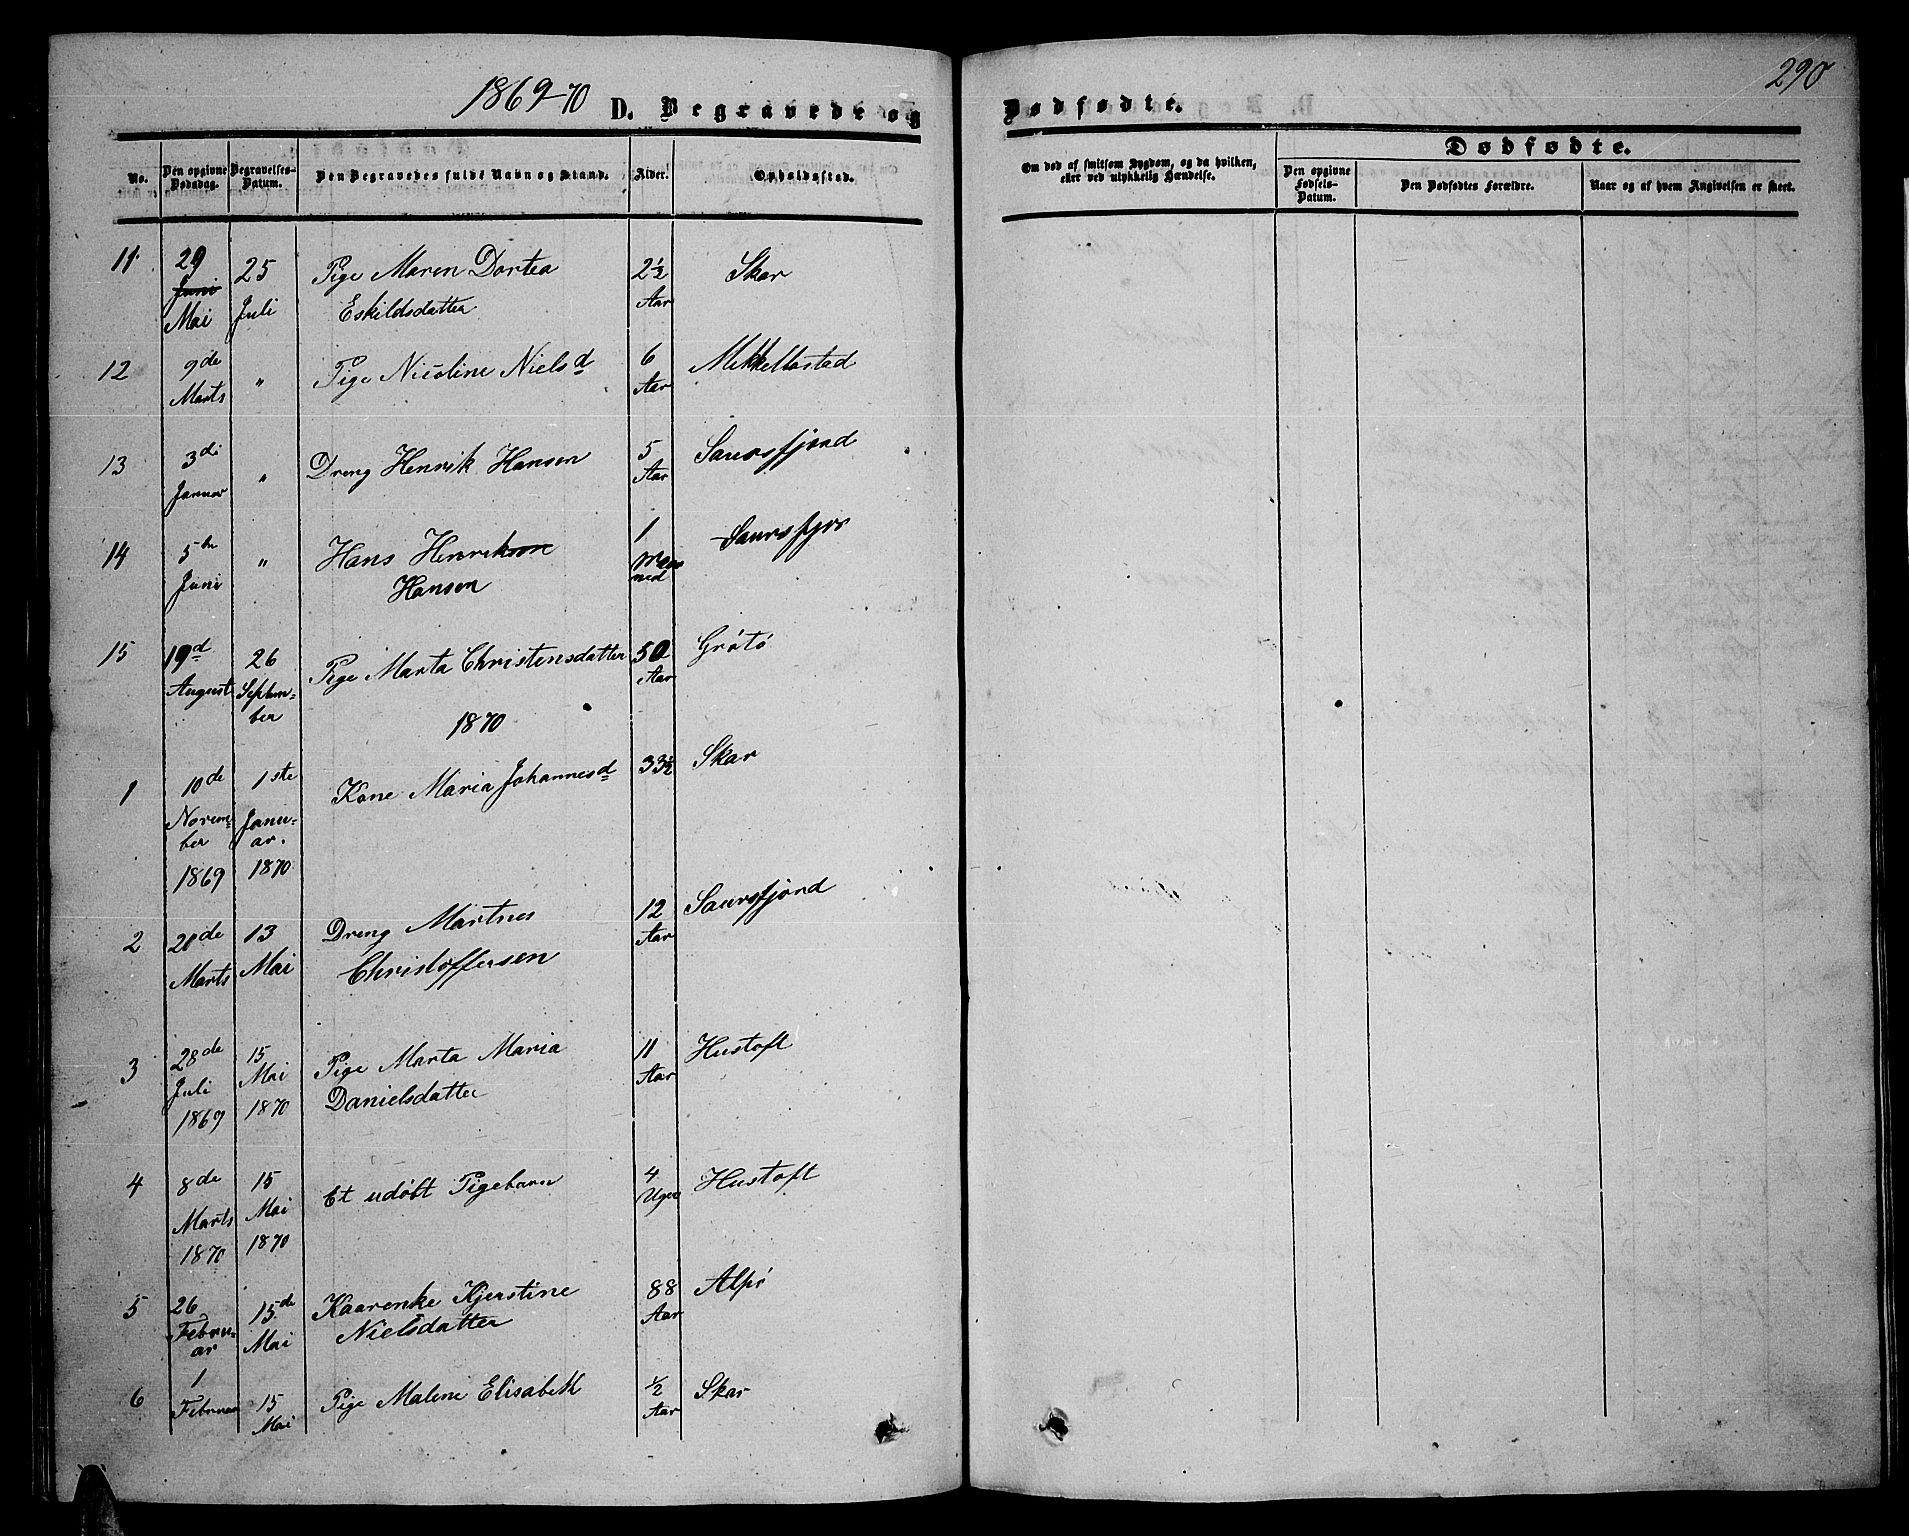 290
1869-70 D. Begravede og Dødfødte.
No. Den opgivne Dødsdag. Begravelses-Datum. Den Begravedes fulde Navn og Stand. Alder. Opholdssted. Om død af smitsom Sygdom, og da hvilken, eller ved ulykkelig Hændelse.
Dødfødte.
Den opgivne Fødsels-Datum. Den Dødfødtes Forældre. Naar og af hvem Angivelsen er skeet.
11. 29 25 Pige Maren Dortea 2½ Skar
Juni Juli Eskildsdatter Aar
Mai
12 9de " Pige Nicoline Nielsd 6 Mikkelbostad
Marts Aar
13 3di " Dreng Henrik Hansen 5 Saursfjord
Januar Aar
14 5te " Hans Henriksen 1 Saursfjor
Juni Hansen Maaned
15 19d 26 Pige Marta Christensdatter 50 Grötö
August September Aar
1870
1 10de 1ste Kone Maria Johannesd 33½ Skar
November Januar.
1869 1870
2 20de 13 Dreng Martnes 12 Saursfjord
Marts Mai Christoffersen Aar
3 28de 15 Pige Marta Maria 11 Hustoft
Juli Mai Danielsdatter Aar
1869 1870
4 8de 15 Et udöbt Pigebarn 4 Hustoft
Marts Mai Uger
1870 1870
5 26 15de Kaarenke Kjerstine 88 Alpö
Februar Mai Nielsdatter Aar
6 1 15 Pige Malene Elisabeth ½ Skar
Februar Mai Aar